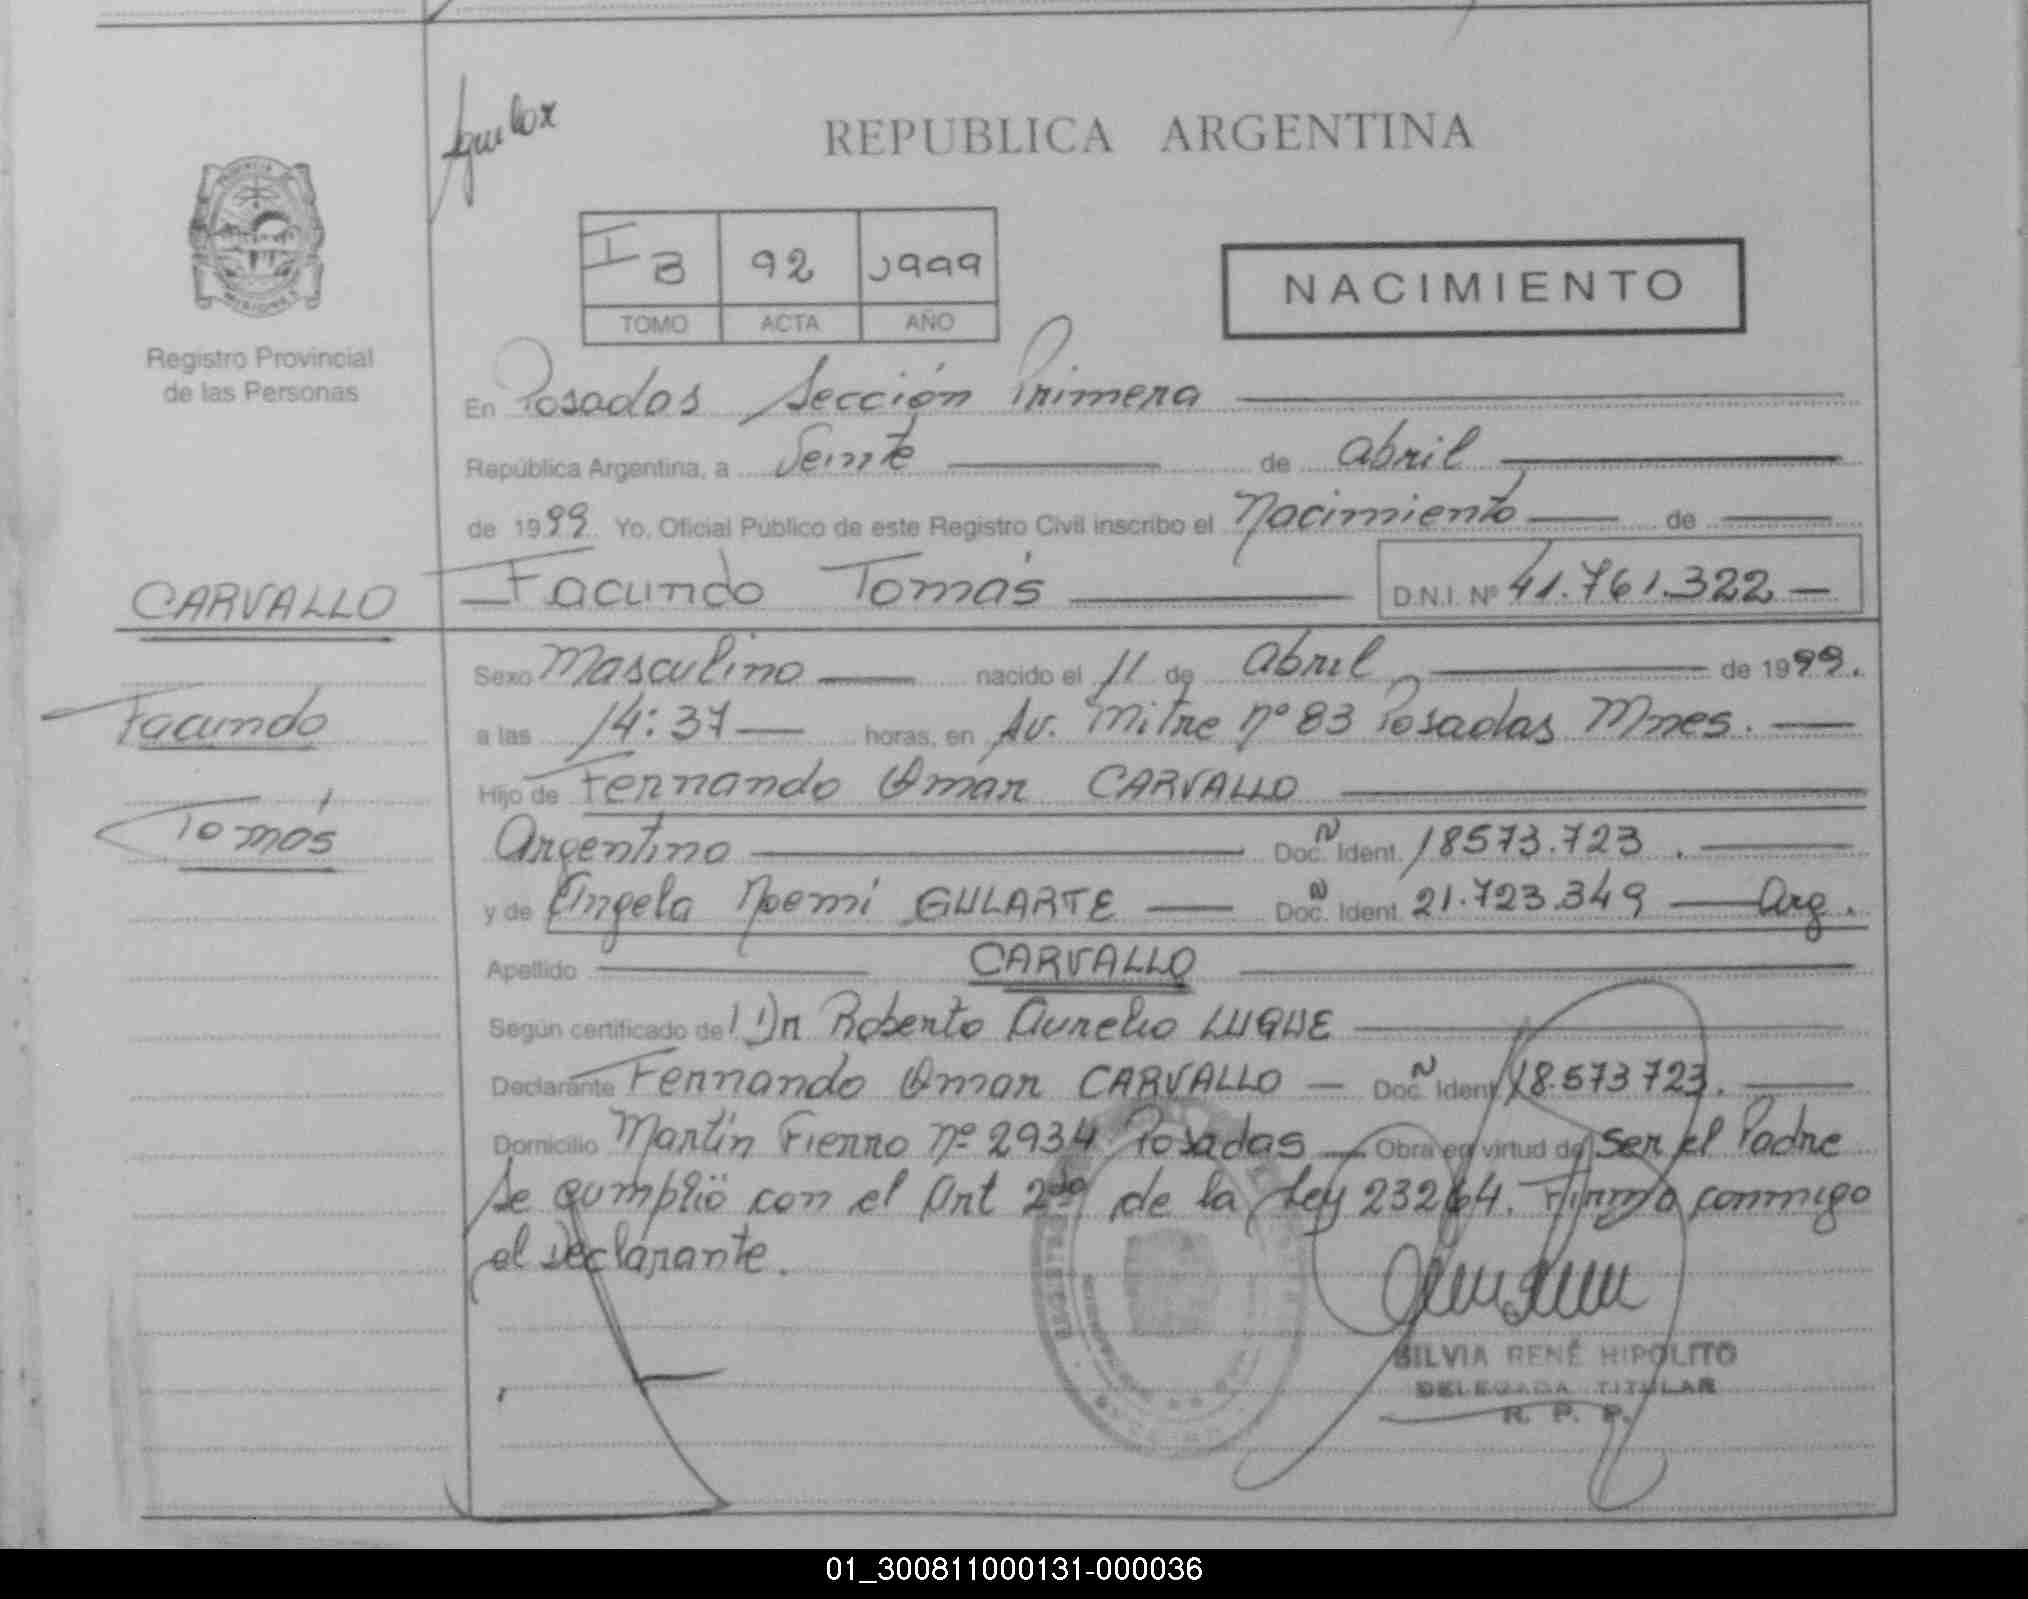 REPUBLICA ARGENTINA
I B 92 1999
TOMO ACTA AÑO
NACIMIENTO
Registro Provincial
de las Personas
En Posadas Sección Primera
República Argentina, a Veinte de abril
de 1999 Yo, Oficial Público de este Registro Civil inscribo el Nacimiento de
CARVALLO
Facundo Tomás D.N.I. Nº 41.761.322
Facundo
Tomás
Sexo Masculino nacido el 11 de abril de 1999.
a las 14:37 horas, en Av. Mitre nº 83 Posadas Mnes.
Hijo de Fernando Omar CARVALLO
Argentino Doc. N Ident. 18573.723.
y de Angela Noemí GULARTE Doc. N Ident. 21.723.349 Arg.
Apellido CARVALLO
Según certificado de Dr Roberto Aurelio LUQUE
Declarante Fernando Omar CARVALLO Doc. N Ident. 18.573723.
Domicilio Martín Fierro nº 2934 Posadas Obra en virtud de ser el Padre
Se cumplió con el Art 2do de la Ley 23264. Firma conmigo
el declarante.
SILVIA RENÉ HIPOLITO
DELEGADA TITULAR
R. P. P.
01_300811000131-000036